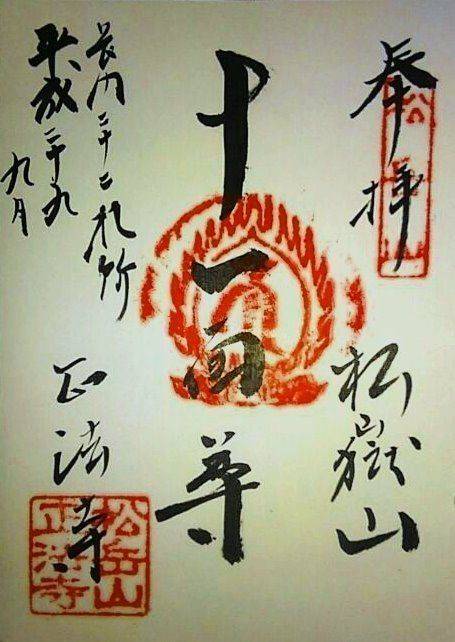 奉拝
松嶽山
十一面尊
長門二十二札所
平成二十九
九月
正法寺
松岳山
正法寺